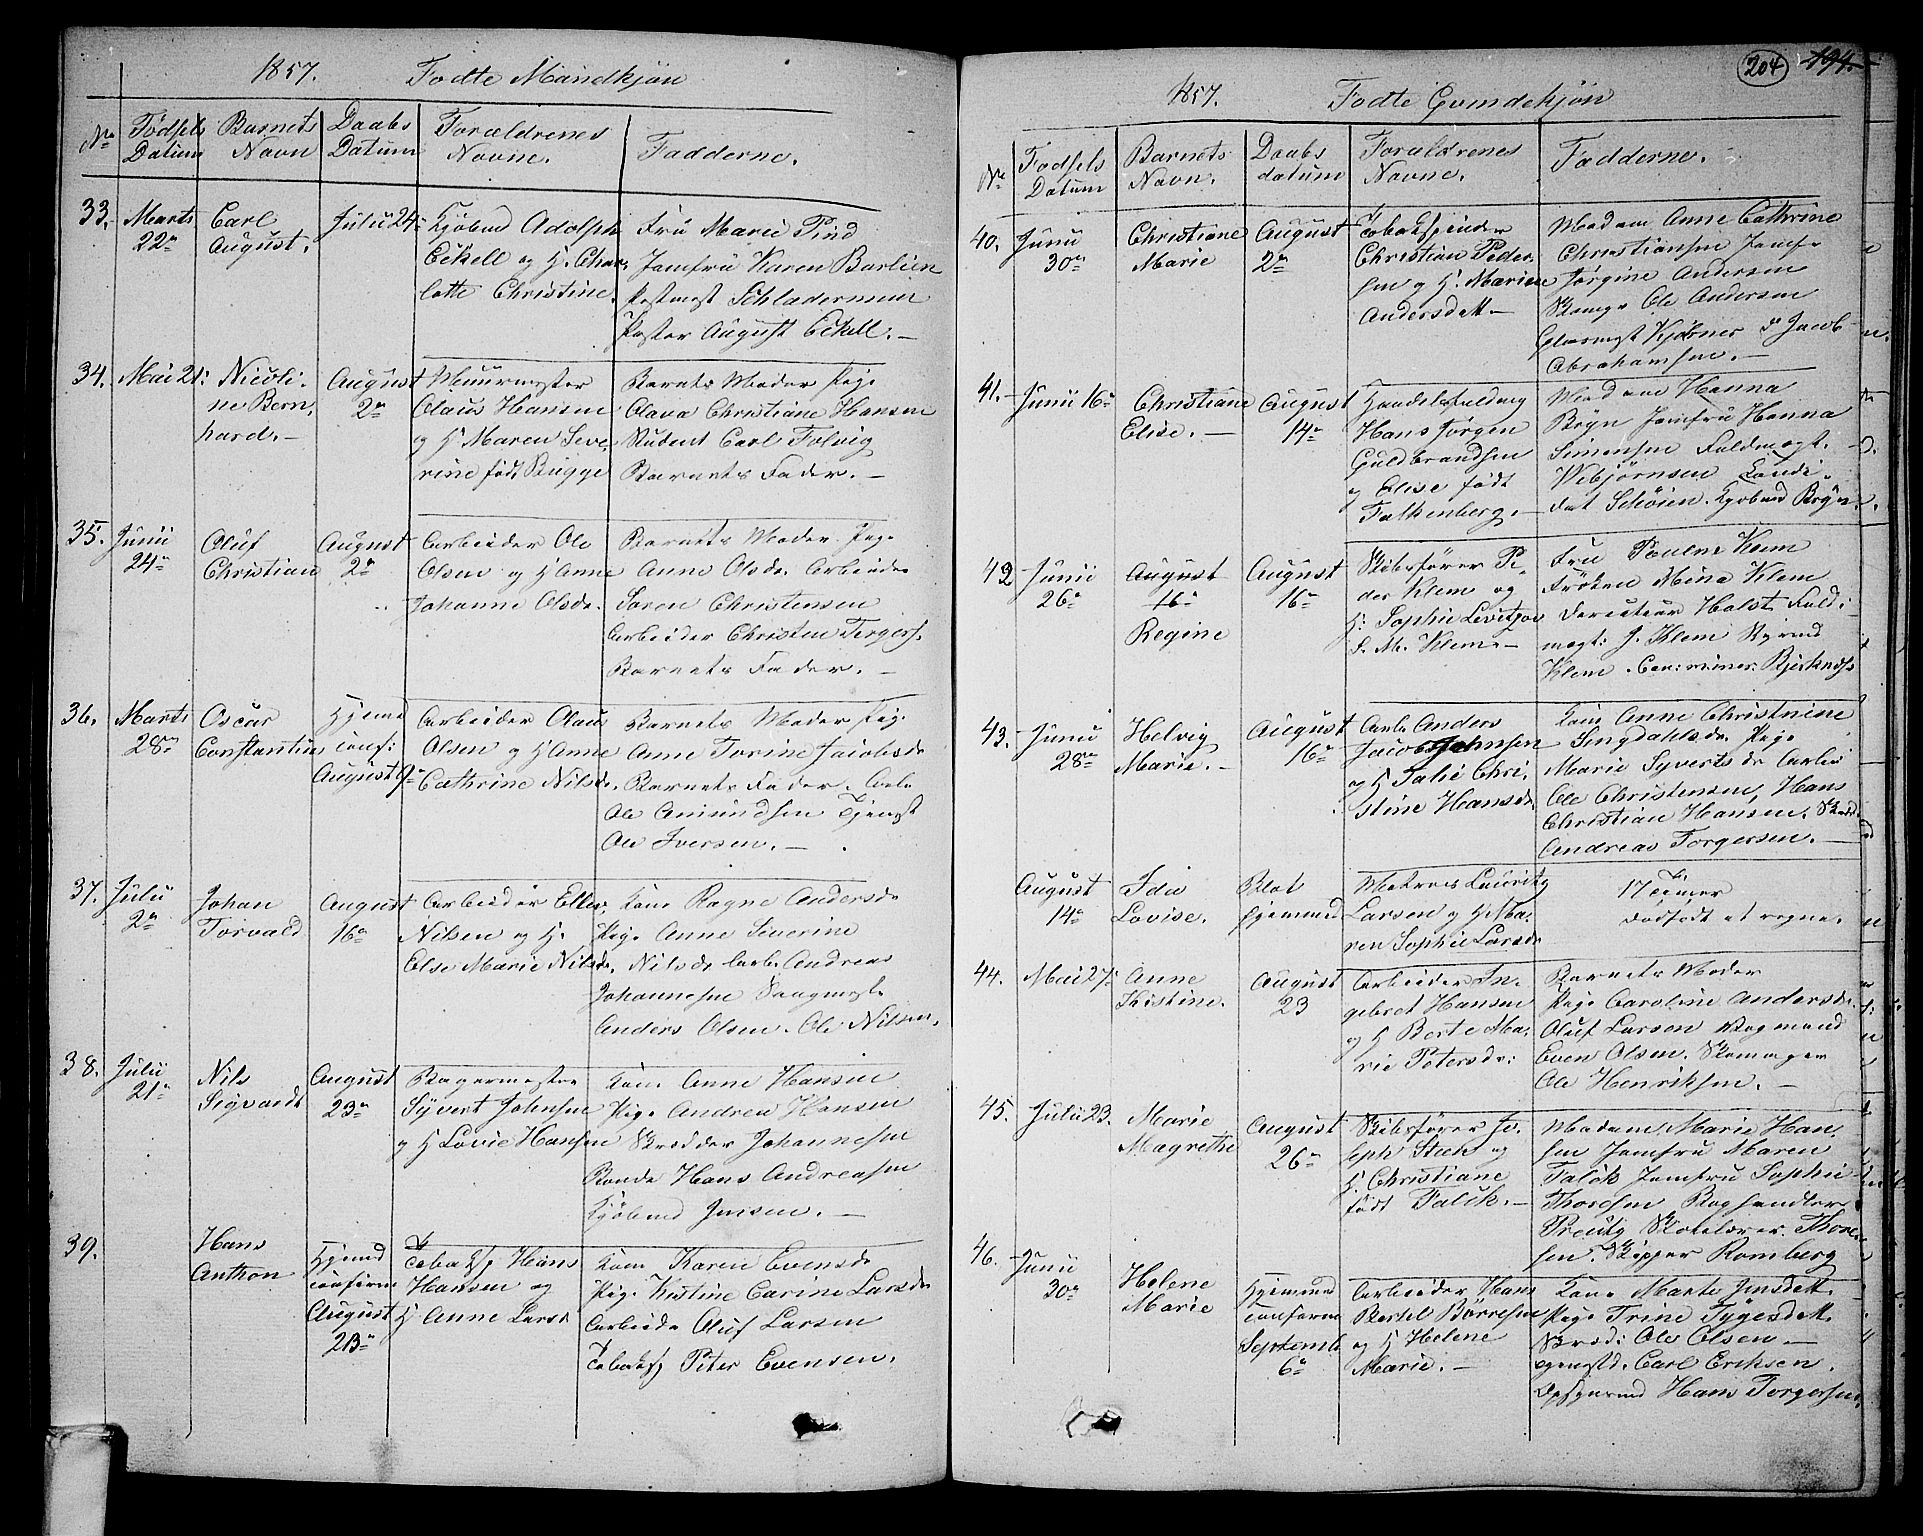 1857. Fødte Mandkjøn
No Fødsels Datum Barnets Navn Daabs Datum Forældrenes Navne. Fadderne.
33. Marts 22de Carl August. Julii 24:
Kjøbmd Adolph
Eckell og H. Char-
lotte Christine.
Fru Marie Pind
Jomfru Karen Barlien
Postmest Schlademun
Pastor August Eckell. —
34. Mai 21: Nicoli-
ne Bern-
hard. — August 2de
Muurmester
Olaus Hansen
og H. Maren Seve-
rine født Bugge
Barnets Moder Pige
Olava Christiane Hansen
Student Carl Tolvig
Barnets Fader. —
35. Junii 24de Oluf
Christian August 2de
Arbeider Ole
Olsen og H Anne
Johanne Olsd.
Barnets Moder Pige
Anne Olsd. Arbeider
Søren Christensen
Arbeider Christen Tergers.
Barnets Fader. —
36. Marts 28de Oscar
Constantin Hjemd
conf:
August 9de
Arbeider Olaus
Olsen og H Anne
Cathrine Nilsd.
Barnets Moder Pige
Anne Torine Jacobsd
Barnets Fader. Arb.
Ole Amundsen Tjenest
Ole Iversen. —
37. Julii 2de Johan
Torvald August 16de
Arbeider Ellev
Nilsen og H.
Else Marie Nilsd.
Kone Ragne Andersd
Pige Anne Severine
Nilsd. Arb. Andreas
Johannesen Baagmest.
Anders Olsen. Ole Nilsen.
38. Julii 21de Nils
Sigvardt August 23de
Bagermester
Syvert Johnsen
og H Lovie Hansen
Kone Anne Hansen
Pige Andrea Hansen
Skrædder Johannesen
Bonde Hans Andreasen
Kjøbmd Jensen. —
39. Hans
Anthon Hjemd
confirm
August
23de
Tobaksp Hans
Hansen og
H Anne Larsd
Kone Karen Evensd
Pige Kistine Carine Larsd
Arbeide Oluf Larsen
Tobaksp Peter Evensen.
204 194.
1857. Fødte Qvindekjøn
No Fødsels Datum Barnets Navn. Daabs datum Forældrenes Navne. Fadderne.
40. Junii 30de Christiane
Marie August 2de
Tobakspinder
Christian Peder-
sen og H. Marien
Andersdatt. —
Madam Anne Cathrine
Christiansen Jomfr
Jørgine Andersen
Skomgr Ole Andersen
Glasmest Kjørner Jacob
Abrahamsen. —
41. Junii 16de Christiane
Elise. — August 14de
Handelsfuldmg
Hans Jørgen
Guldbrandsen
og Elise født
Falkenberg. —
Madam Hanna
Bryn Jomfru Hanna
Simensen Fuldmægt.
Wibjørnsen Candi-
dat Schøien. Kjøbmd Bryn
42 Junii 26de August
16de
Regine August 16de
Skibsfører Pe-
der Klem og
H. Sophie Levitzow
S. M. Klem. —
Fru Pauline Klem
Frøken Mina Klem
Directeur Holst Fuld-
mægt: J. Klem
Klem.
43. Junii 28de Helvig
Marie. — August 16de
Arb. Anders
Jacob Johnsen
og H Talie Chri-
stine Hansd.
Kone Anne Christnine
Singdahlsd. Pige
Marie Syvertsd. Arbei
Ole Christensen, Hans
Christian Hansen. Skræd.
Andreas Torgersen. —
August 14de Ida
Lovise. Blot
hjemmed
Matros Lauritz
Larsen og H. Ma-
ren Sophie Larsd.
17 Timer
Dødfødt at regne.
44. Mai 27: Anne
Kistine. August 23
Arbeider In-
gebret Hansen
og H Berte Ma-
rie Petersd:
Barnets Moder
Pige Caroline Andersd.
Oluf Larsen Bogmand
Even Olsen. Skomager
Ole Henriksen. —
45. Julii 23. Marie
Magrethe August 26de
Skibsfører Jo-
seph Steen og
H. Christiane
født Falck. —
Madam Marie Han-
sen Jomfru Maren
Falck Jomfru Sophie
Thoresen Boghandler
Preutz Skolelærer Thore-
sen. Skipper Romberg
46. Junii 30de Helene
Marie Hjemmed
confirm
Septemb
6de
Arbeider Hans
Bertel Børresen
og H Helene
Marie. —
Kone Marte Jensdatt.
Pige Trine Tygesdatt.
Skræd: Ole Olsen —
Carl Eriksen.
Opsynsmd Hans Torgersen.